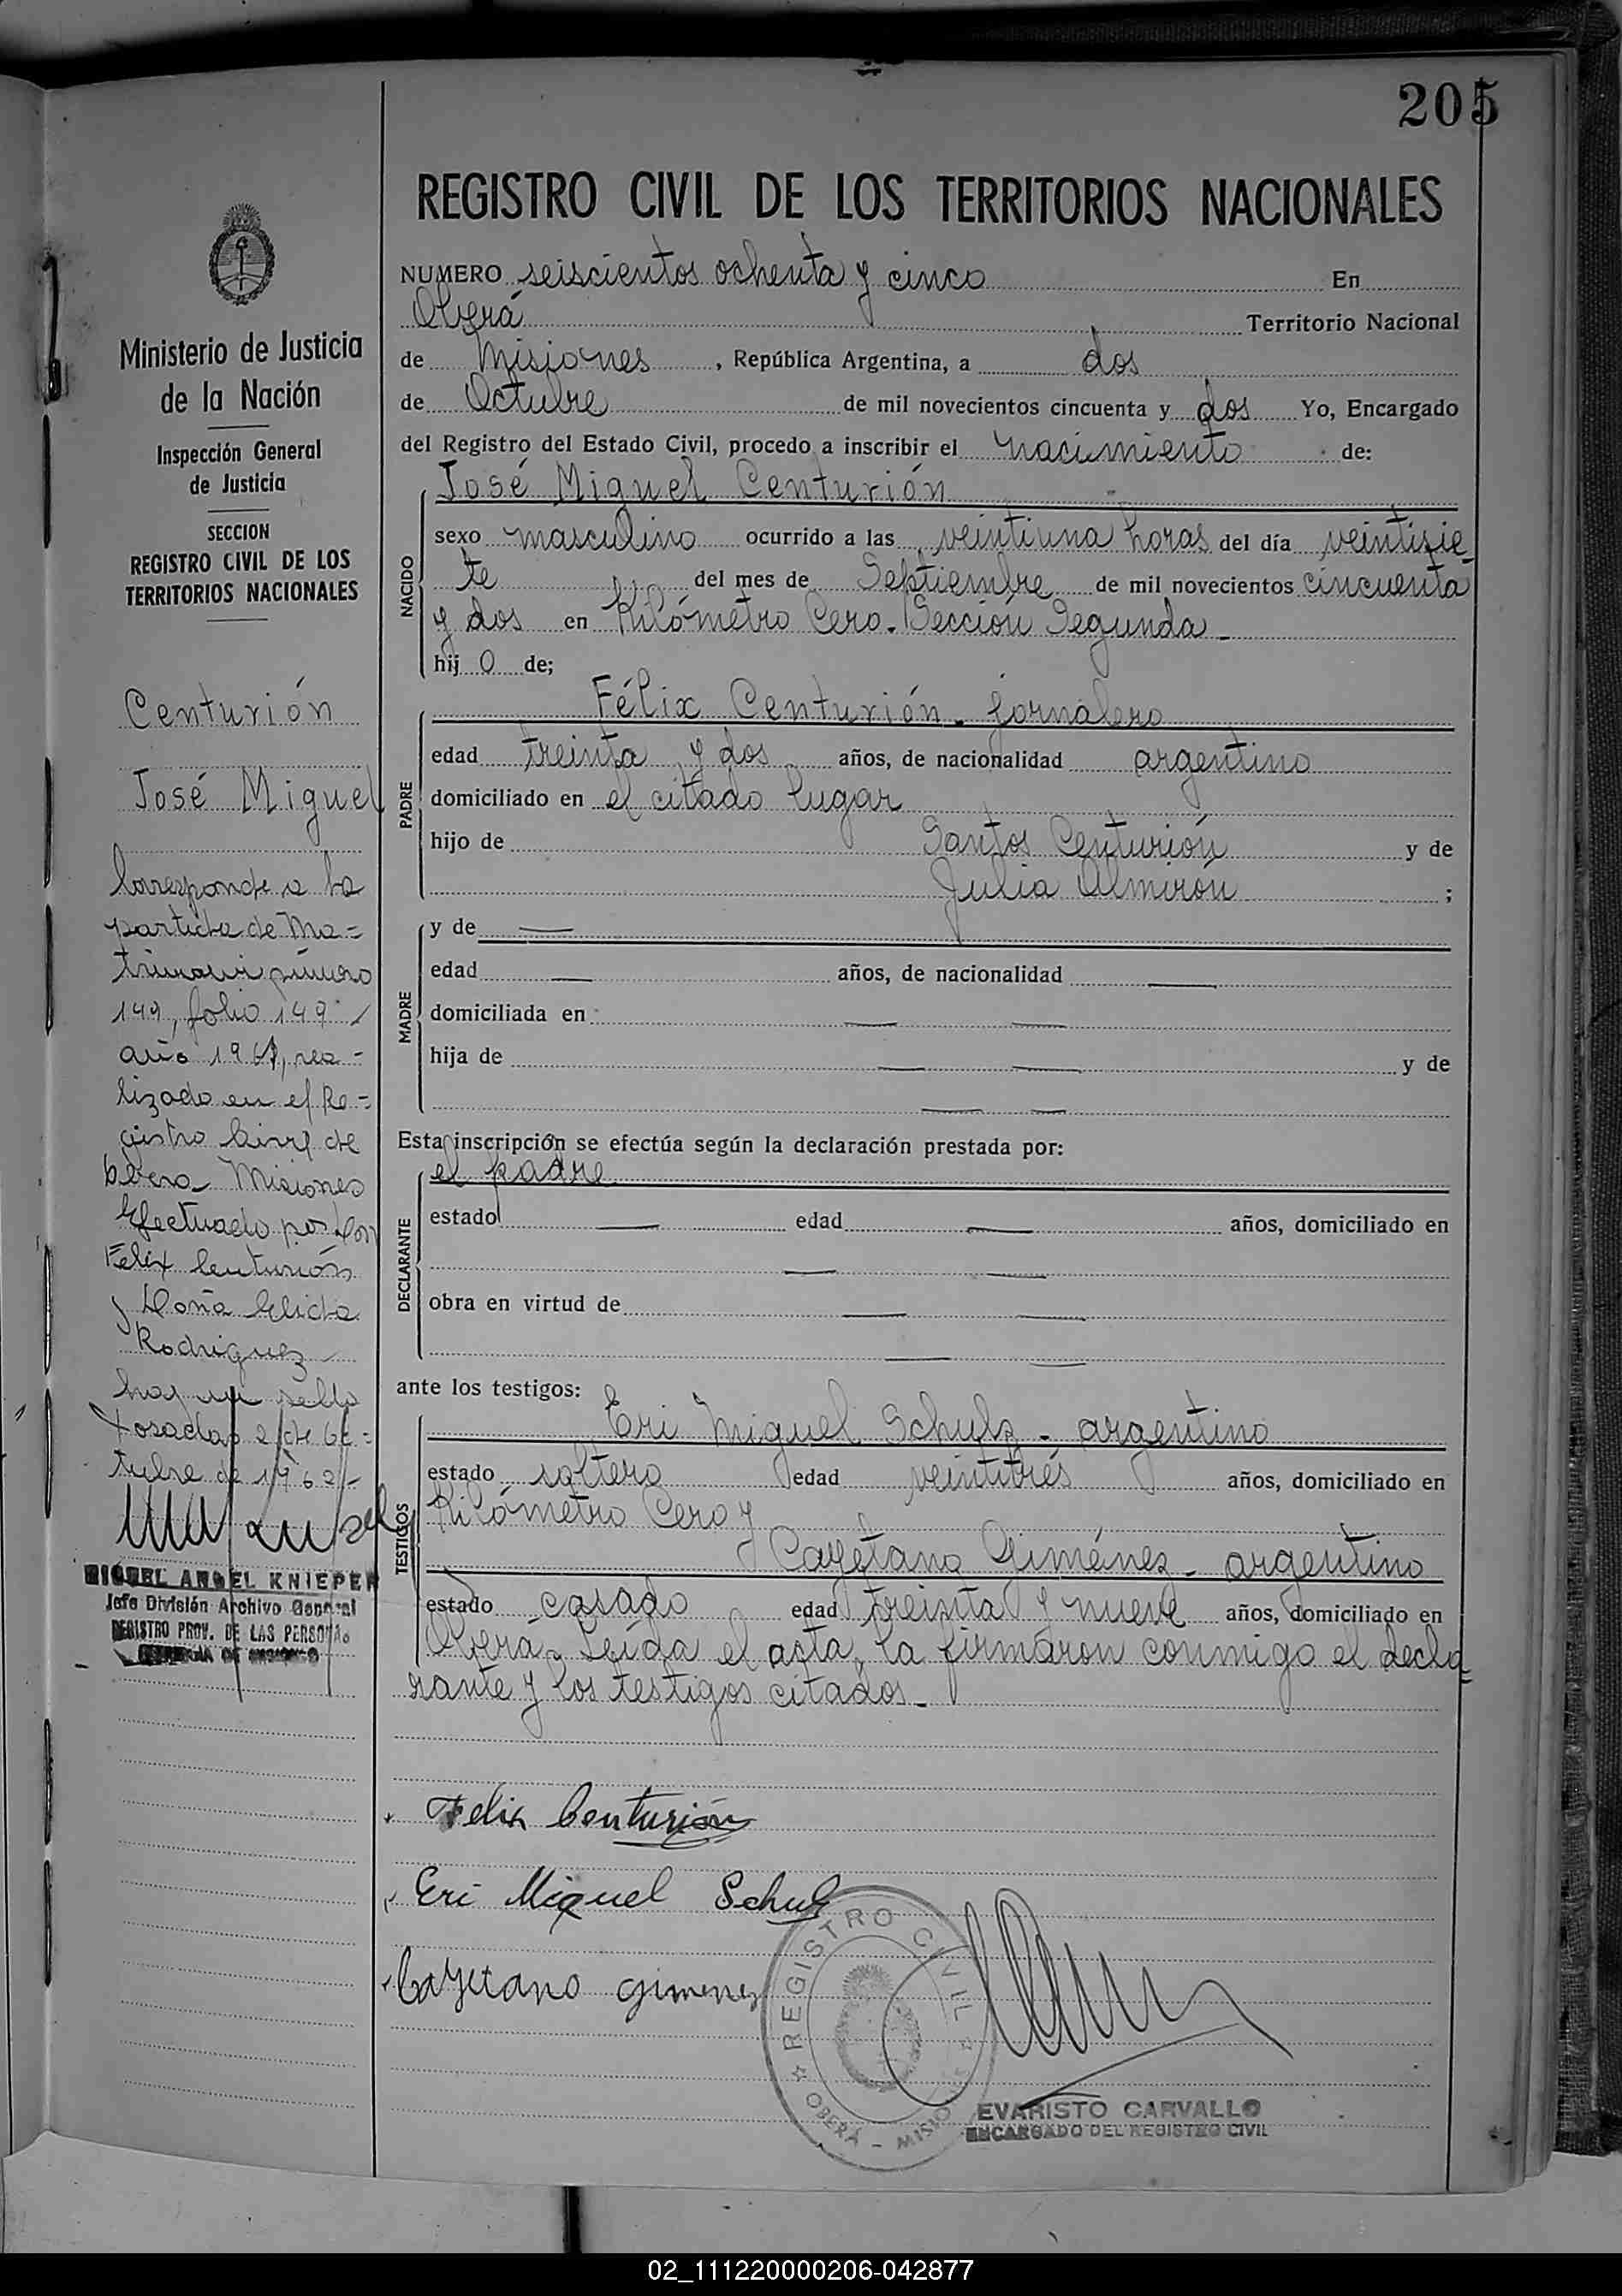 205
REGISTRO CIVIL DE LOS TERRITORIOS NACIONALES
NUMERO seiscientos ochenta y cinco En
Oberá Territorio Nacional
de Misiones, República Argentina, a dos
de Octubre de mil novecientos cincuenta y dos Yo, Encargado
del Registro del Estado Civil, procedo a inscribir el nacimiento de:
José Miguel Centurión
NACIDO
sexo masculino ocurrido a las veintiuna horas del día veintisie-
te del mes de Septiembre de mil novecientos cincuenta
y dos en Kilómetro Cero. Sección Segunda-
hij o de;
Félix Centurión - jornalero
PADRE
edad treinta y dos años, de nacionalidad argentino
domiciliado en el citado lugar
hijo de Santos Centurión y de
Julia Almirón ;
MADRE
y de —
edad — años, de nacionalidad —
domiciliada en — —
hija de — — y de
— —
Esta inscripción se efectúa según la declaración prestada por:
el padre
DECLARANTE
estado — edad — años, domiciliado en
— —
obra en virtud de — —
— —
ante los testigos:
TESTIGOS
Eri Miguel Schulz - argentino
estado soltero edad veintitrés años, domiciliado en
Kilómetro Cero y
Cayetano Giménez - argentino
estado casado edad treinta y nueve años, domiciliado en
Oberá. Leída el acta, la firmaron conmigo el decla-
rante y los testigos citados.-
Felix Centurión
Eri Miguel Schulz
Cayetano Gimenez
REGISTRO CIVIL
OBERÁ - MISIO
EVARISTO CARVALLO
ENCARGADO DEL REGISTRO CIVIL
Ministerio de Justicia
de la Nación
Inspección General
de Justicia
SECCION
REGISTRO CIVIL DE LOS
TERRITORIOS NACIONALES
Centurión
José Miguel
Corresponde a la
partida de Ma-
trimonio número
149, folio 149
año 196, rea-
lizado en el Re-
gistro Civil de
Misiones
Efectuado por Don
Felix Centurión
y Doña Elida
Rodriguez
hay un sello
Posadas 2 de Oc-
tubre de 196
MIGUEL ANGEL KNIEPER
Jefe División Archivo General
REGISTRO PROV. DE LAS PERSONAS
02_111220000206-042877